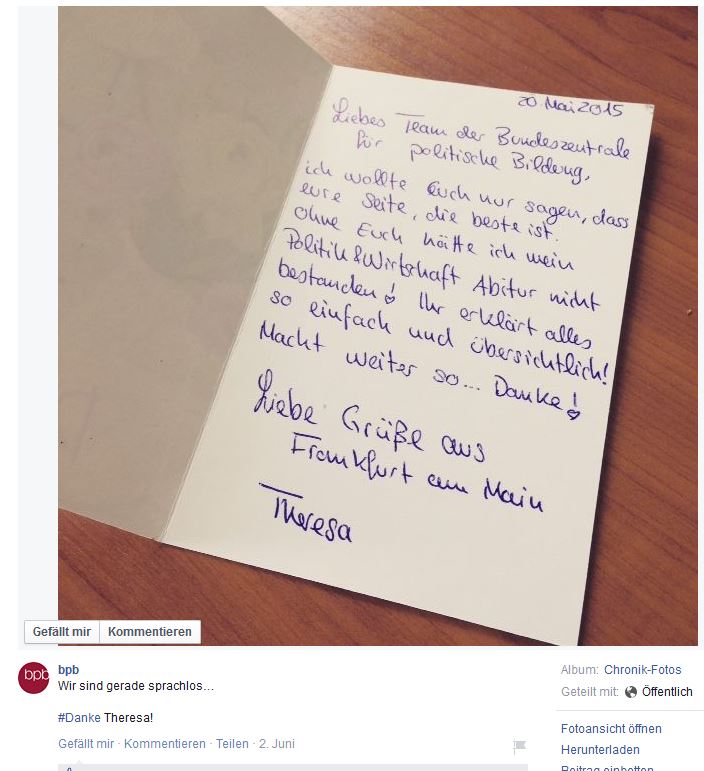 20. Mai 2015
Liebes Team der Bundeszentrale
für politische Bildung,
ich wollte Euch nur sagen, dass
eure Seite, die beste ist.
ohne Euch hätte ich mein
Politik & Wirtschaft Abitur nicht
bestanden! Ihr erklärt alles
so einfach und übersichtlich!
Macht weiter so... Danke!
Liebe Grüße aus
Frankfurt am Main
Theresa
Gefällt mir Kommentieren
bpb
bpb
Wir sind gerade sprachlos...
#Danke Theresa!
Gefällt mir · Kommentieren · Teilen · 2. Juni
Album: Chronik-Fotos
Geteilt mit: Öffentlich
Fotoansicht öffnen
Herunterladen
Beitrag einbetten